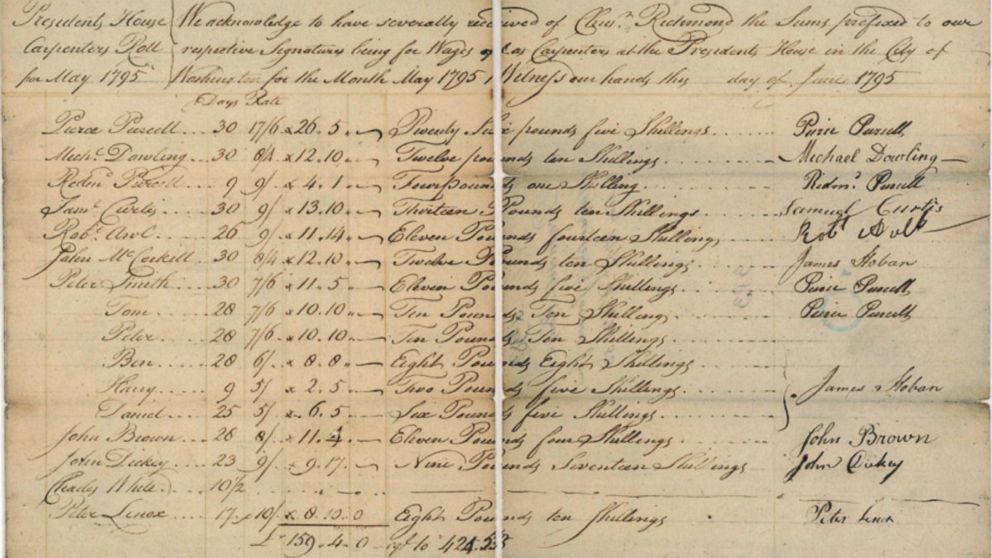 Presidents House We acknowledge to have severally received of Clem.t Redmond the Sums, prefixed to our
Carpenters Roll respective Signatures being for Wages as Carpenters at the Presidents House in the City of
for May 1795 Washington for the Month May 1795 Witness our hands this day of June 1795
Days Rate
Pierce Purcell ... 30 17/6 x 26.5 .. — Twenty Six pounds five Shillings ... Peirie Purcell
Mich.l Dowling ... 30 8/4 x 12.10 .. — Twelve pounds ten Shillings ... Michael Dowling
Redm.d Purcell ... 9 9/ x 4.1 .. — Four pounds one Shilling ... Redm.d Purcell
Sam.l Curtis ... 30 9/ x 13.10 .. — Thirteen Pounds ten Shillings ... Samuel Curtis
Rob.t Aul ... 26 9/ x 11.14 .. — Eleven Pounds fourteen Shillings ... Rob.t Ault
John McCorkill ... 30 8/4 x 12.10 .. — Twelve Pounds ten Shillings ... James Hoban
Peter Smith ... 30 7/6 x 11.5 .. — Eleven Pounds five Shillings ... Peirie Purcell
Tom ... 28 7/6 x 10.10 .. — Ten Pounds Ten Shillings ... Peirie Purcell
Peter ... 28 7/6 x 10.10 .. — Ten Pounds Ten Shillings ...
Ben ... 28 6/ x 8.8 .. — Eight Pounds Eight Shillings ...
Harry ... 9 5/ x 2.5 .. — Two Pounds five Shillings ... James Hoban
Daniel ... 25 5/ x 6.5 .. — Six Pounds five Shillings ...
John Brown ... 28 8/ x 11.4 .. — Eleven Pounds four Shillings ... John Brown
John Dickey ... 23 9/ - 9.17 .. — Nine Pounds Seventeen Shillings ... John Dickey
Charles White ... 10 1/2
Peter Lenox ... 17 x 10/ x 8.10.0 Eight Pounds ten Shillings ... Peter Lenox
£ 159.4.0 to 424.53